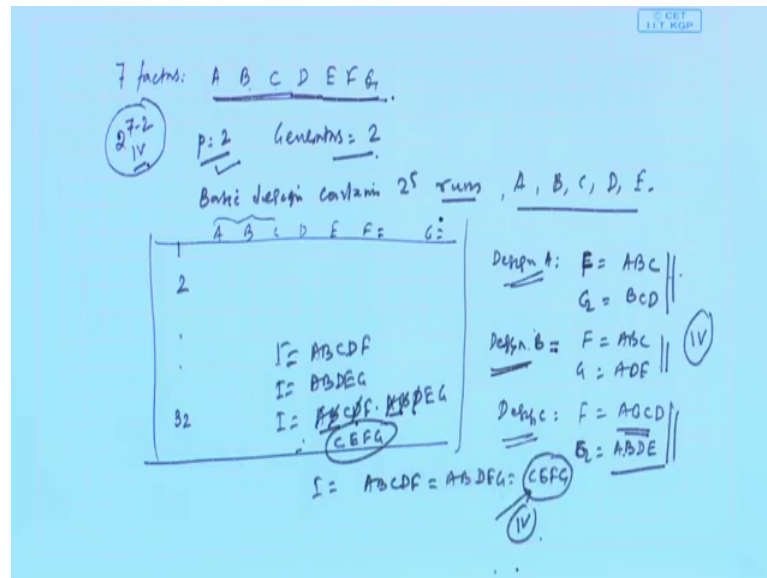 © CET
I.I.T. KGP
7 factors: A B C D E F G.
2^{7-2}_{IV}
p: 2 Generators = 2
Basic design contains 2^5 runs, A, B, C, D, E.
A B C D E F= G=
1
2
.
.
32
I = ABCDF
I = ABDEG
I = ABCDF . ABDEG
: CEFG
Design A: F = ABC
G = BCD
Design B = F = ABC
G = ADE
IV
Design C: F = ABCD
G = ABDE
I = ABCDF = ABDEG = CEFG
IV.